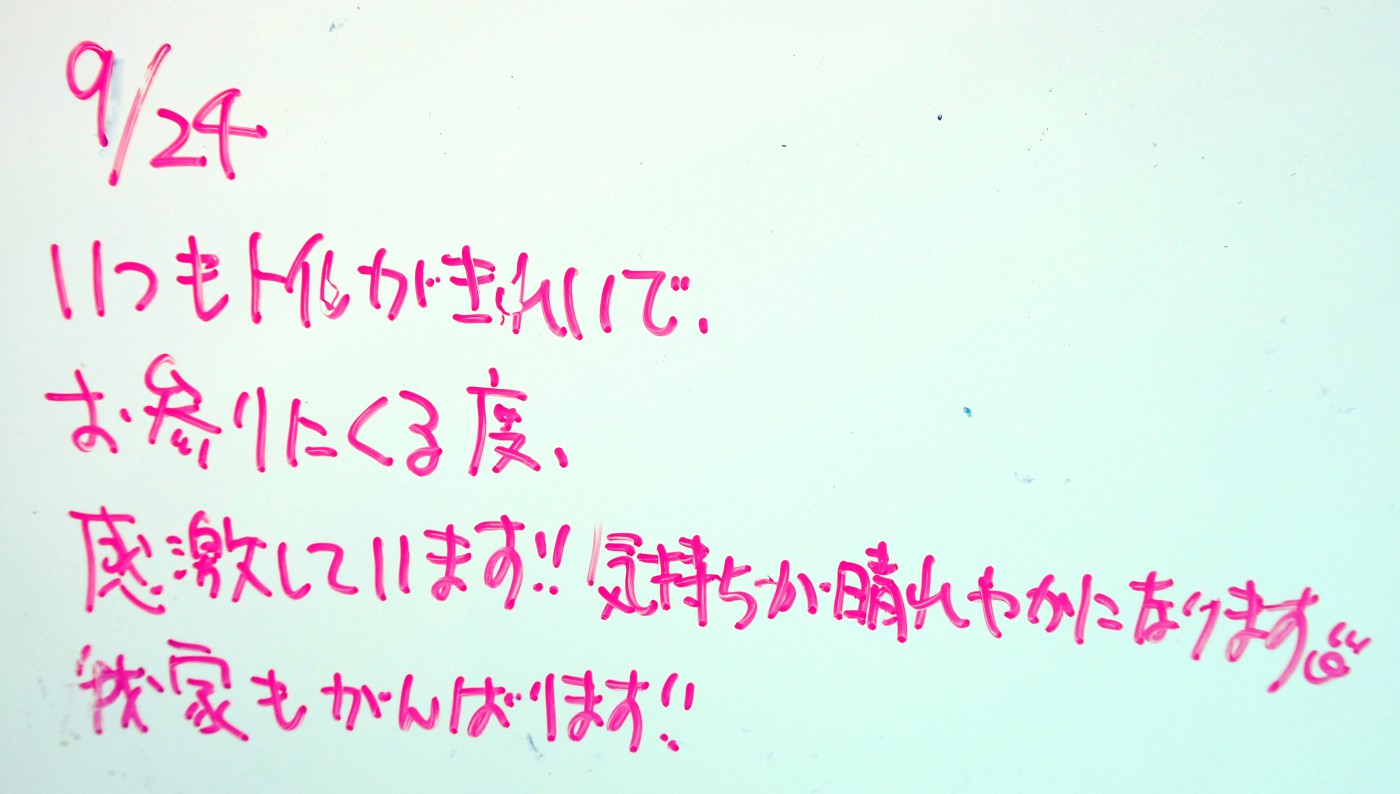 9/24
いつもトイレがきれいで、
お参りにくる度、
感激しています!! 気持ちが晴れやかになります
我家もがんばります!!